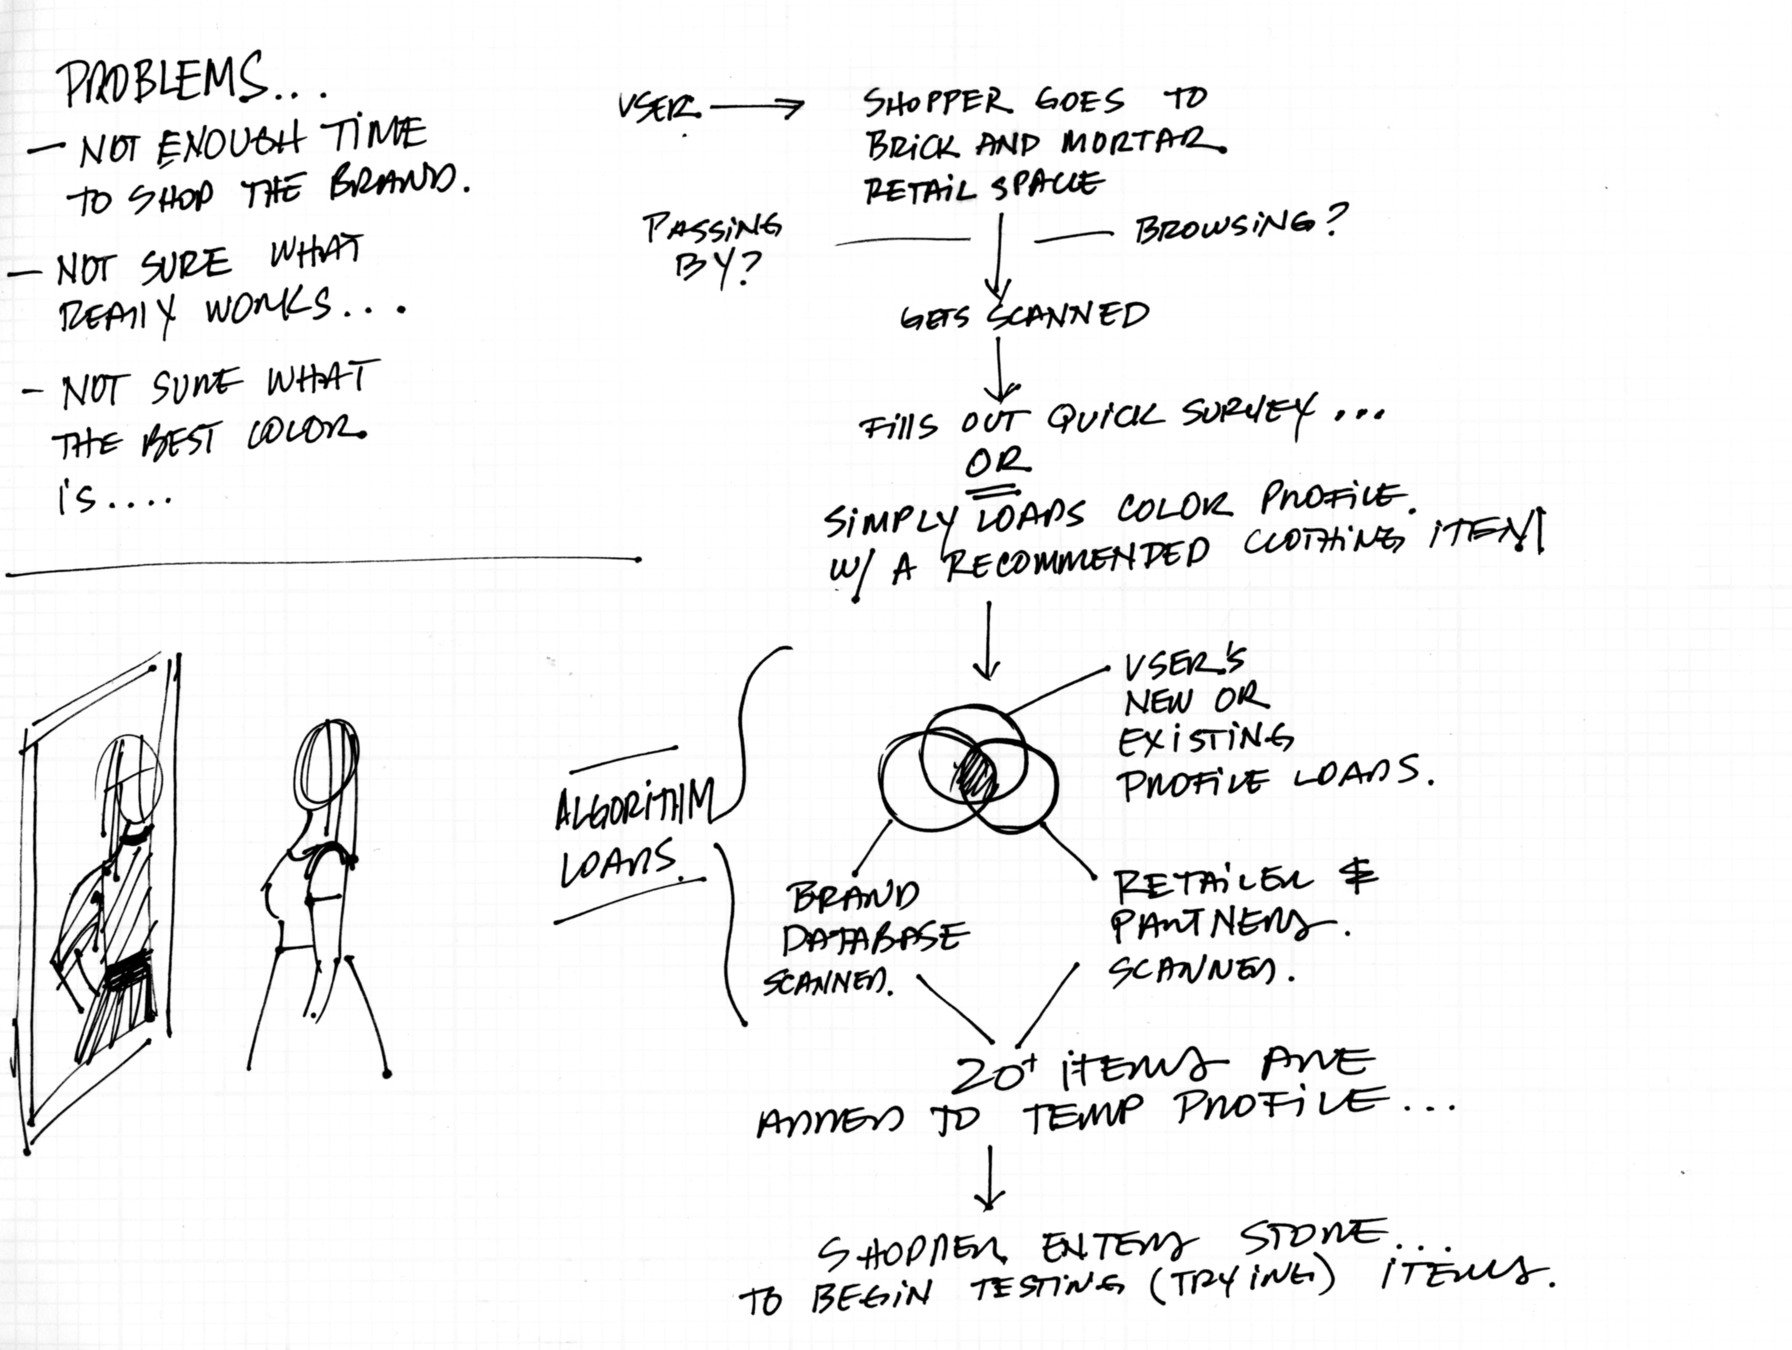 PROBLEMS...
- NOT ENOUGH TIME
TO SHOP THE BRAND.
- NOT SURE WHAT
REALLY WORKS...
- NOT SURE WHAT
THE BEST COLOR
IS....
USER
SHOPPER GOES TO
BRICK AND MORTAR
RETAIL SPACE
PASSING
BY?
BROWSING?
GETS SCANNED
FILLS OUT QUICK SURVEY...
OR
SIMPLY LOADS COLOR PROFILE.
W/ A RECOMMENDED CLOTHING ITEM
USER'S
NEW OR
EXISTING
PROFILE LOADS.
ALGORITHM
LOADS.
BRAND
DATABASE
SCANNED.
RETAILER &
PARTNERS.
SCANNED.
20+ ITEMS ARE
ADDED TO TEMP PROFILE...
SHOPPER ENTERS STORE...
TO BEGIN TESTING (TRYING) ITEMS.